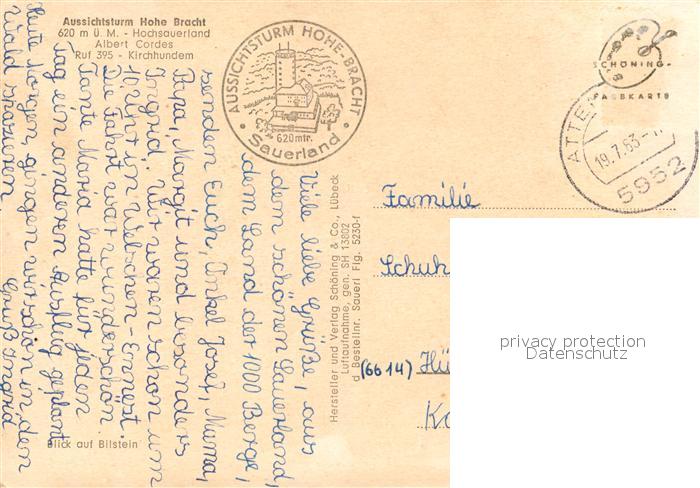 Aussichtsturm Hohe Bracht
620 m Ü. M. - Hochsauerland
Albert Cordes
Ruf 395 - Kirchhundem
AUSSICHTSTURM HOHE-BRACHT
620mtr.
Sauerland
SCHÖNING-
FARBKARTE
ATTE
19.7.63
5952
Viele liebe Grüße, aus
dem schönen Sauerland,
dem Land der 1000 Berge,
senden Euch, Onkel Josef, Mama,
Papa, Margit und besonders
Ingrid. Wir waren schon um
10 Uhr in Welschen-Ennest.
Die Fahrt war wunderschön.
Tante Maria hatte für jeden
Tag ein anderen Ausflug geplant.
Heute Morgen, gingen wir schön in den
Wald spazieren.
Gruß Ingrid
Hersteller und Verlag Schöning & Co., Lübeck
Luftaufnahme, gen. SH 13802
d Bestellnr. Sauerl Flg. 5230-f
Familie
Schuh
(6614) Hü
Ko
privacy protection
Datenschutz
Blick auf Bilstein